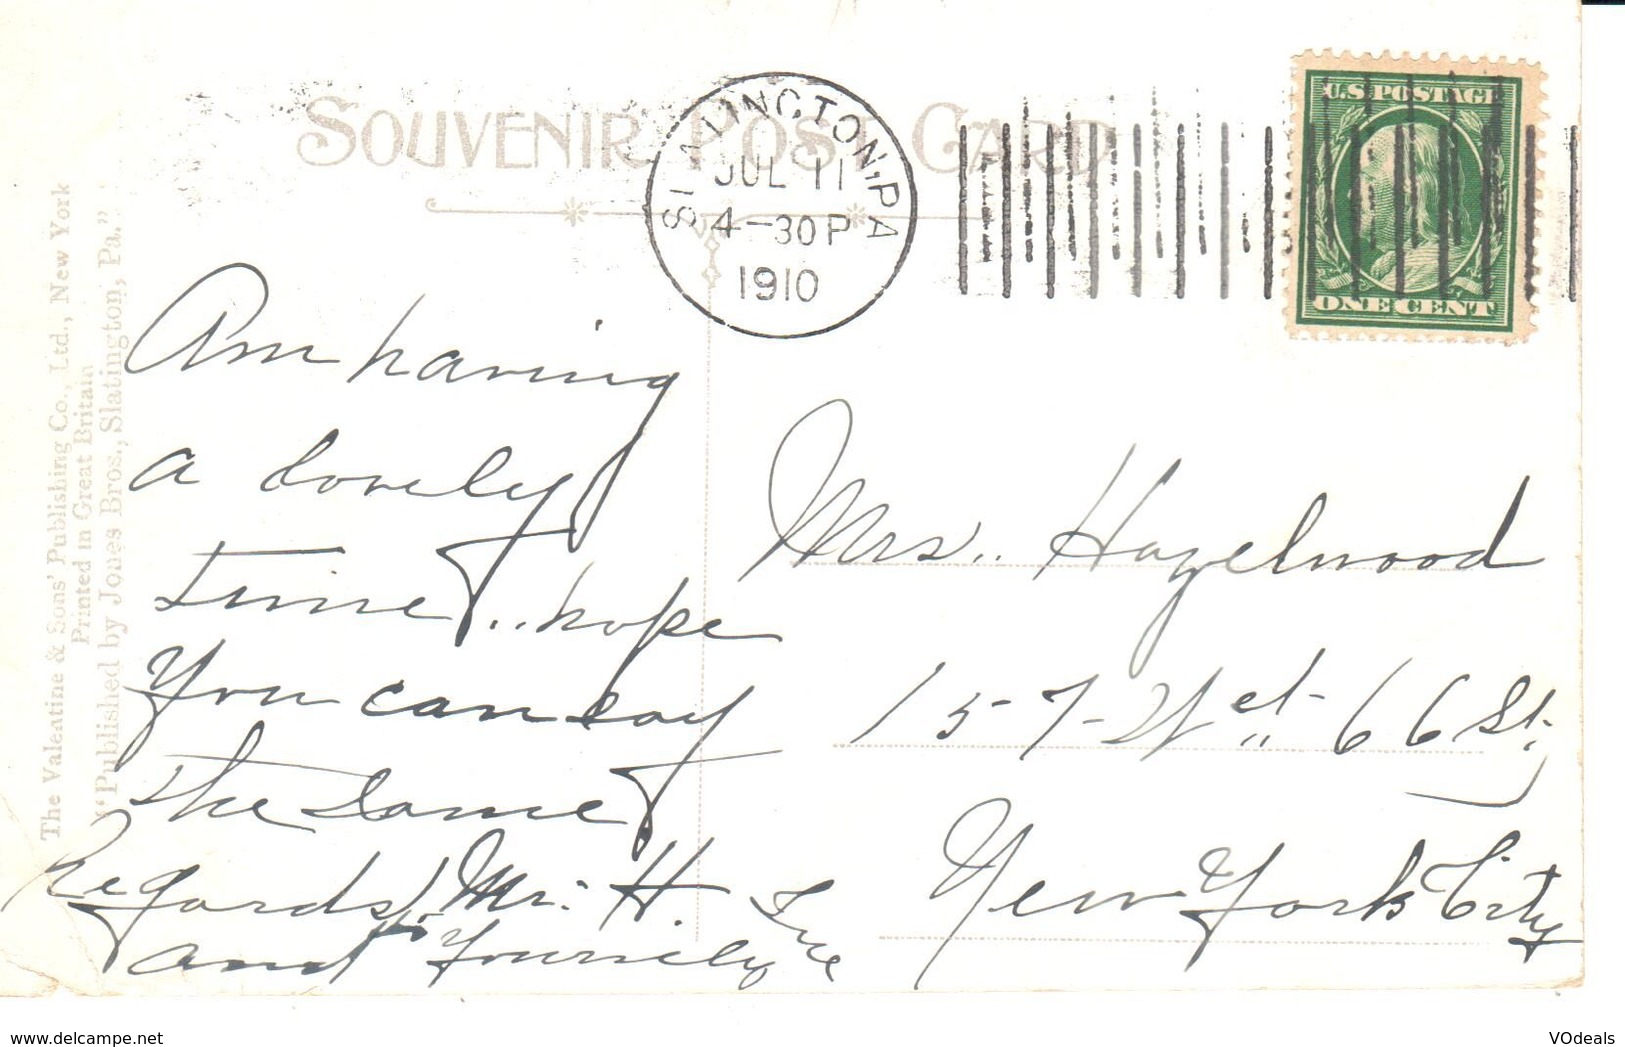 SOUVENIR POST CARD
SLATINGTON, PA
JUL 11
4-30 P
1910
U.S. POSTAGE
ONE CENT
The Valentine & Sons' Publishing Co., Ltd., New York
Printed in Great Britain
"Published by Jones Bros., Slatington, Pa."
Am having
a lovely
time.. hope
You can say
the same
Regards to Mr. H.
and family
Mrs.. Hazelwood
157 - West - 66 St.
New York City
www.delcampe.net
VOdeals